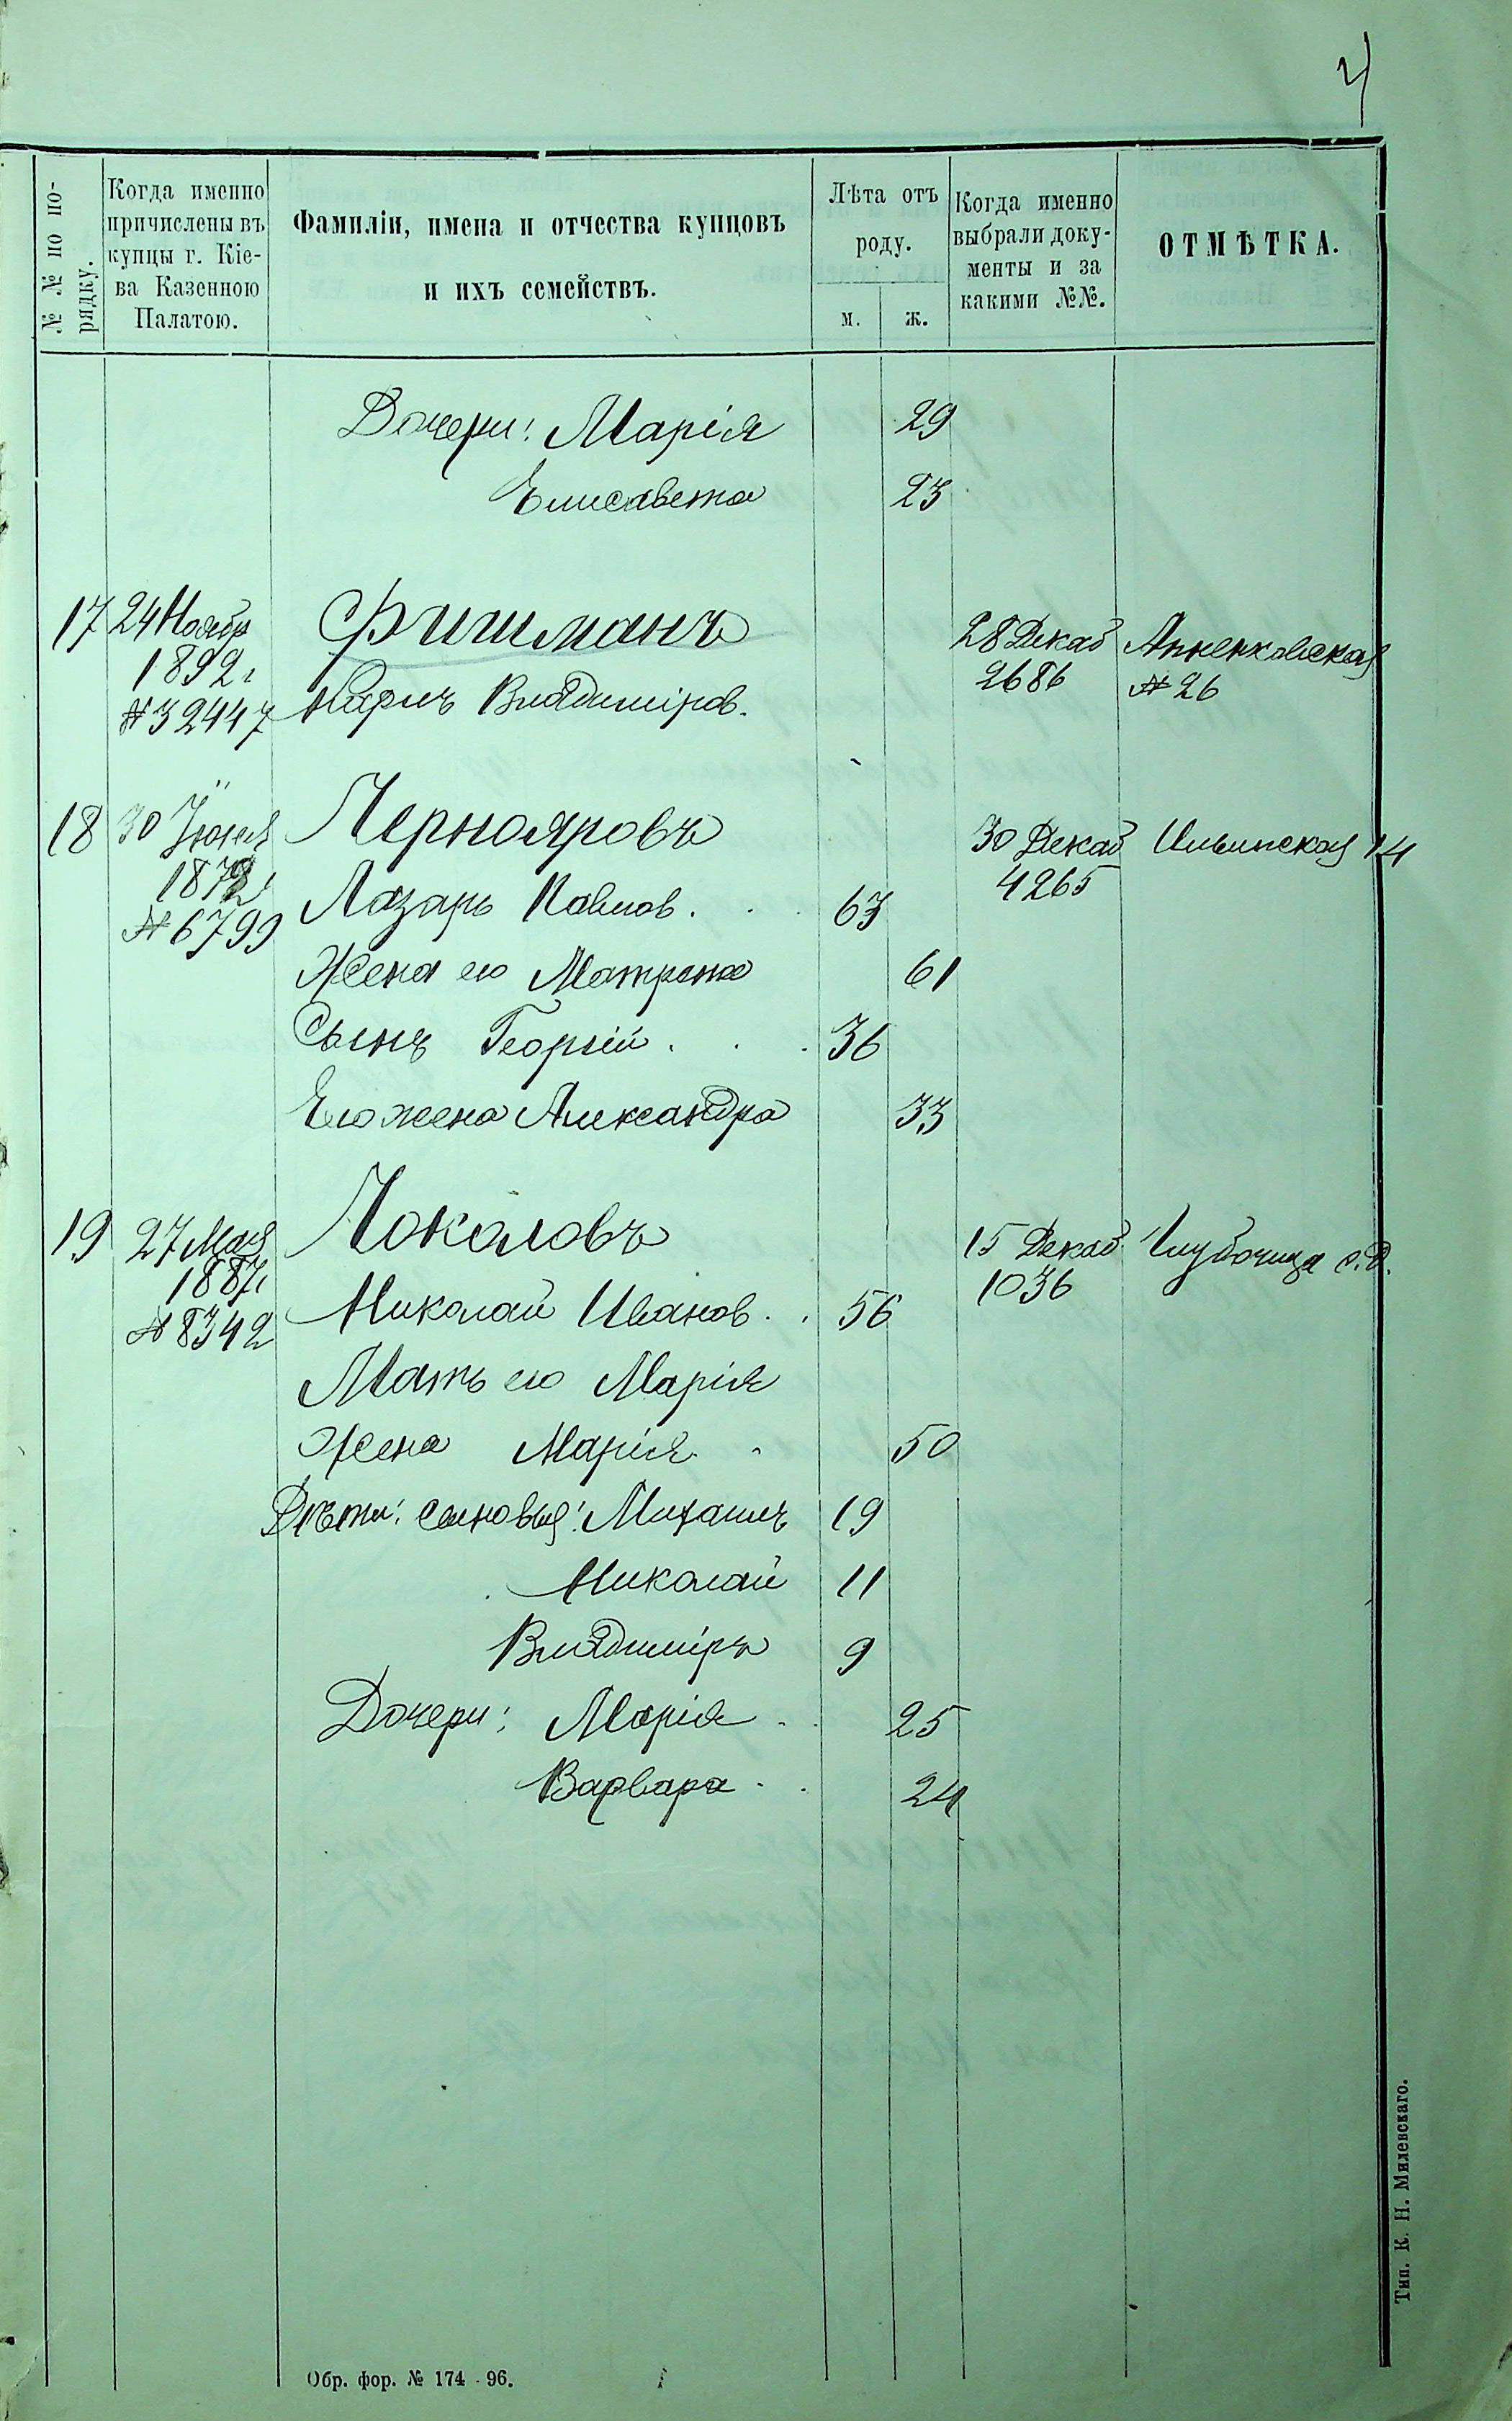 4
№ № по по-
рядку.
Когда именно
причислены въ
купцы г. Кіе-
ва Казенною
Палатою.
Фамиліи, имена и отчества купцовъ
и ихъ семействъ.
Лѣта отъ
роду.
м. ж.
Когда именно
выбрали доку-
менты и за
какими №№.
ОТМѢТКА.
Дочери: Марія 29
Елисавета 23
17 24 Ноябр Фишманъ 28 Декаб Анненковская
1892 г 2686 № 26
№ 32447 Карлъ Владиміров.
18 30 Іюня Чернояровъ 30 Декаб Ильинская 14
1872 г 4265
№ 6799 Лазарь Павлов. 63
Жена его Матрена 61
Сынъ Георгій 36
Его жена Александра 33
19 27 Мая Чоколовъ 15 Декаб Глубочица с. д.
1887 г 1036
№ 8342 Николай Иванов 56
Мать его Марія
Жена Марія 50
Дѣти: сыновья: Михаилъ 19
Николай 11
Владиміръ 9
Дочери: Марія 25
Варвара 24
Обр. фор. № 174 - 96.
Тип. К. Н. Милевскаго.